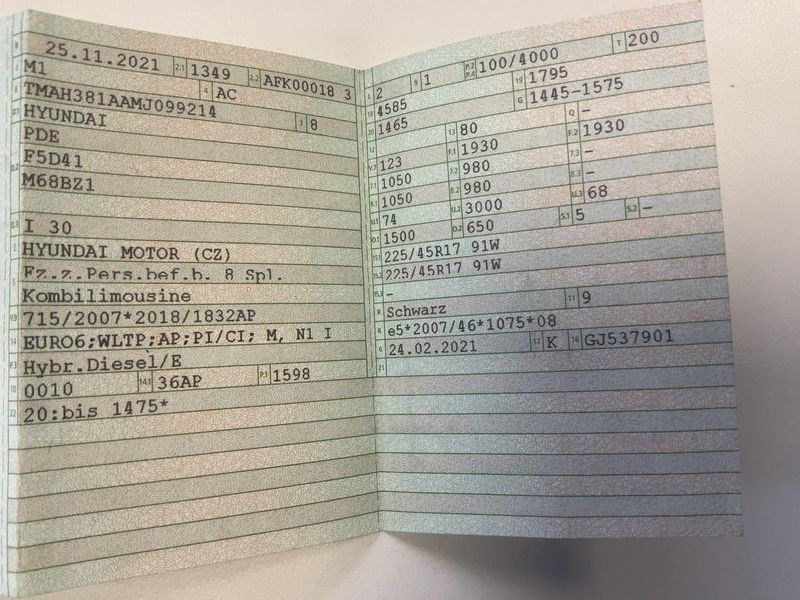 B 25.11.2021 2.1 1349 2.2 AFK00018 3
J M1 4 AC
E TMAH381AAMJ099214 3 8
D.1 HYUNDAI
PDE
D.2 F5D41
M68BZ1
D.3 I 30
2 HYUNDAI MOTOR (CZ)
5 Fz.z.Pers.bef.b. 8 Spl.
Kombilimousine
V.9 715/2007*2018/1832AP
14 EURO6;WLTP;AP;PI/CI; M, N1 I
P.3 Hybr.Diesel/E
10 0010 14.1 36AP P.1 1598
22 20:bis 1475*
L 2 9 1 P.2 P.4 100/4000 T 200
18 4585 19 1795
20 1465 G 1445-1575
12 13 80 Q -
V.7 123 F.1 1930 F.2 1930
7.1 1050 7.2 980 7.3 -
8.1 1050 8.2 980 8.3 -
U.1 74 U.2 3000 U.3 68
O.1 1500 O.2 650 S.1 5 S.2 -
15.1 225/45R17 91W
15.2 225/45R17 91W
15.3 -
R Schwarz 11 9
K e5*2007/46*1075*08
6 24.02.2021 17 K 16 GJ537901
21